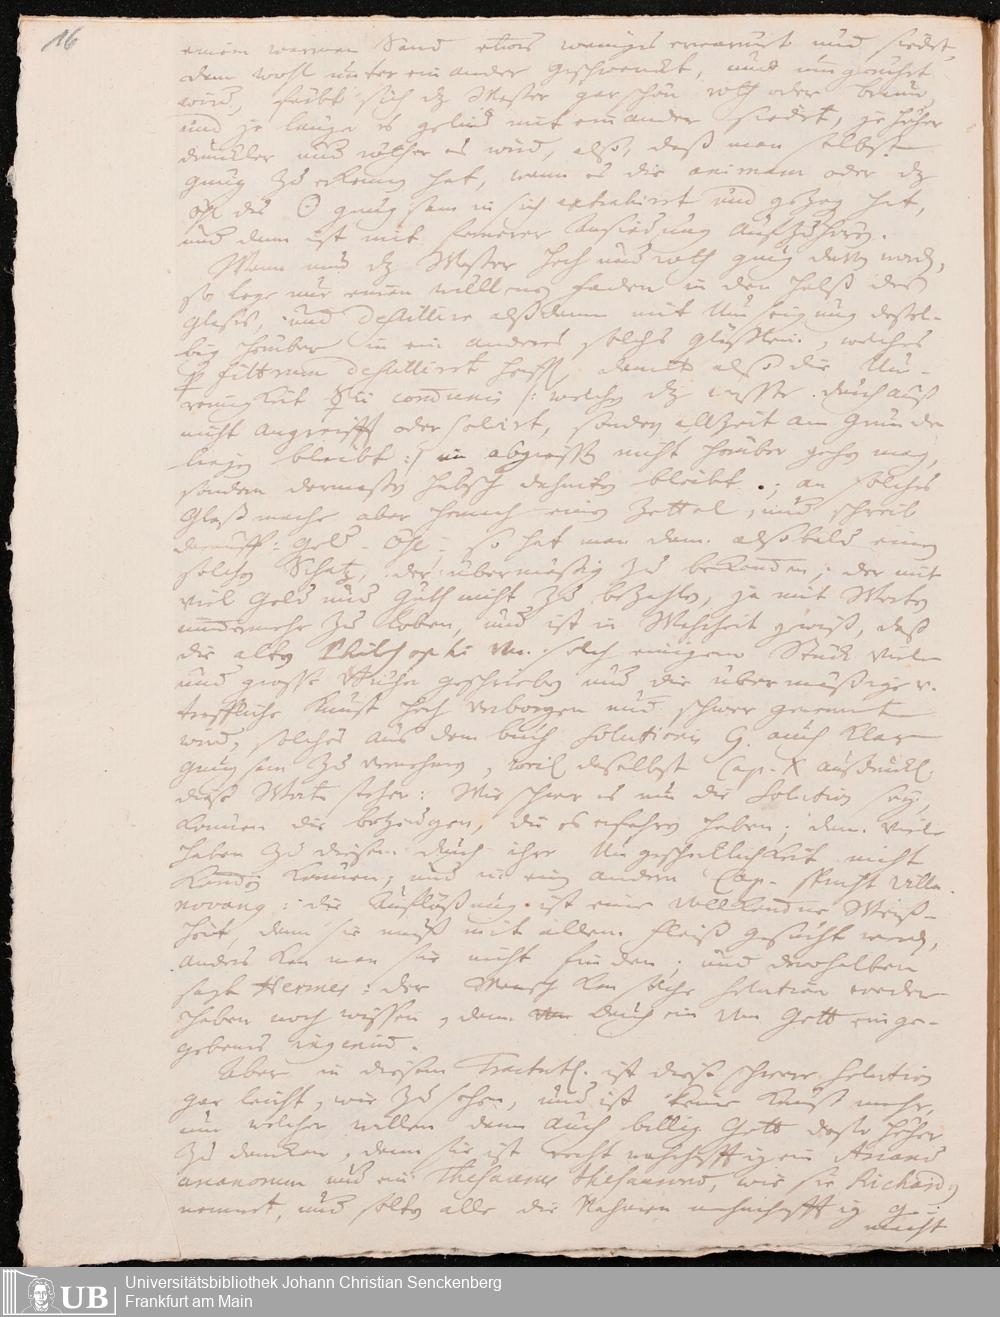 16
einem warmen Sand etwas weniges erwarmet und siedet,
dann wohl unter einander geschwenckt, und umgerührt
wird, färbt sich dz Wasser gar schön roth oder braun,
und je länger es gelind mit einander siedet, je höher
dunckler und röther es wird, also, daß man selbst
gnug zu erkennen hat, wann es die animam oder dz
Öhl des ☉ gnugsam in sich extrahirt und gezogen hat,
und dann ist mit fernerer ansiedung aufzuhören.
Wann nun dz Wasser hoch und roth gnug worden,
so lege nur einen wüllenen faden in den halß des
Glases, und destillire alßdann mit Umneigung dessel-
ben herüber in ein anderes solches Gläßlein, welches
per filtrum destillirt heist, damit also die Un-
reinigkeit communis /: welchen dz wasser durchaus
nicht angreifft oder solvirt, sondern allzeit am Grunde
liegen bleibt :/ nicht herüber gehen mag,
sondern dahinten bleibt; an solches
Glaß mache aber hernach einen Zettel, und schreib
darauff: Gold-Öhl: so hat man dann alsobald einen
solchen Schatz, der übermäßig zu bekommen, der mit
viel Geld und Guth nicht zu bezahlen, ja mit Worten
nimmermehr zu loben, und ist in Wahrheit gewiß, daß
die alten Philosophi von solch einigem Stück viele
und grosse Bücher geschrieben und die übermäßige v.
treffliche Kunst hoch verborgen und schwer genennt
wird, solches aus dem buch Solutionis auch klar
gnugsam zu vernehmen, weil daselbst Cap. X ausdrückl.
diese Worte stehen: Wie schwer es um die Solution sey,
können die bezeugen, die es erfahren haben; dann viele
haben zu diesem durch ihre Ungeschicklichkeit nicht
kommen können; und in ein andern Cap. spricht Villa-
novanus: die Auflößung ist eine vollkomne Weiß-
heit, dann sie muß mit allem fleiß gesucht werden,
anders kan man sie nicht finden; und derohalben
sagt Hermes: der Mensch kan solche Solution weder
haben noch wissen, dann durch ein von Gott einge-
gebenes ingenium.
Aber in diesem Tractätl. ist diese schwere Solution
gar leicht, wie zu sehen, und ist keine Kunst mehr,
um welcher willen dann auch billig Gott desto höher
zu dancken, dann sie ist recht wahrhafftig ein Arcanum
arcanorum und ein Thesaurus thesaurorum, wie sie Richardus
nennet, und sollen alle die Nahmen wahrhafftig
nicht
Universitätsbibliothek Johann Christian Senckenberg
Frankfurt am Main
UB